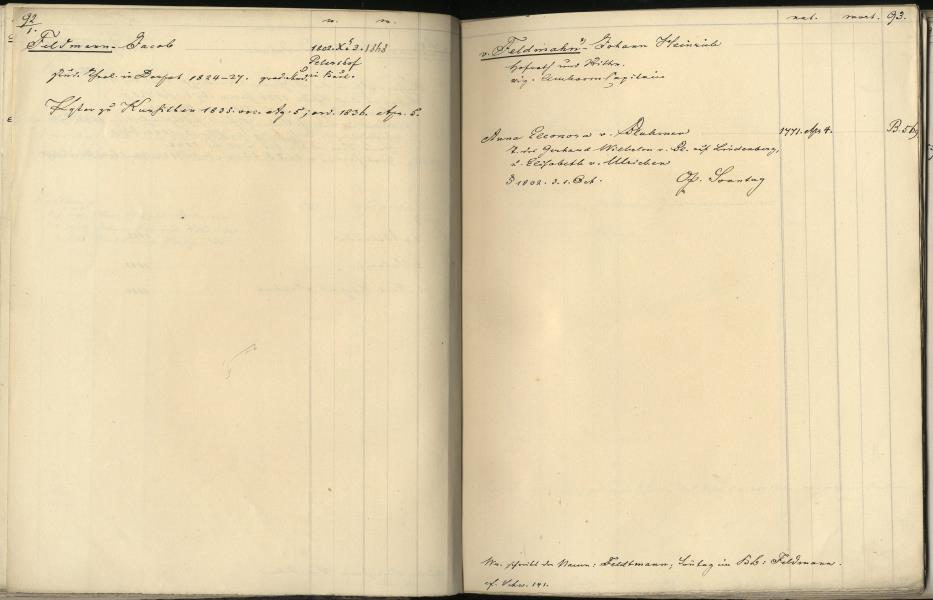 92
1.
n. m.
Feldmann. Jacob 1802. X. 2. 1868
Petershof
stud. theol. in Dorpat 1824-27. grad. stud. in
Pastor zu 1835. voc. Ag. 5; ord. 1836. Apr. 5.
nat. mort. 93.
v. Feldmahn. Johann Heinrich
Hofrath und Ritter.
Capitain
Anna Eleonora v. Bluhmen 1771. Apr. 4. B. 56
T. des Gerhard Wilhelm v. Bl. auf Lindenberg,
u. Elisabeth v.
1802. 3. 1. Oct. Sonntag
schreibt den Namen: Feldtmann, Sonntag im Kb: Feldmann.
cf. 141.